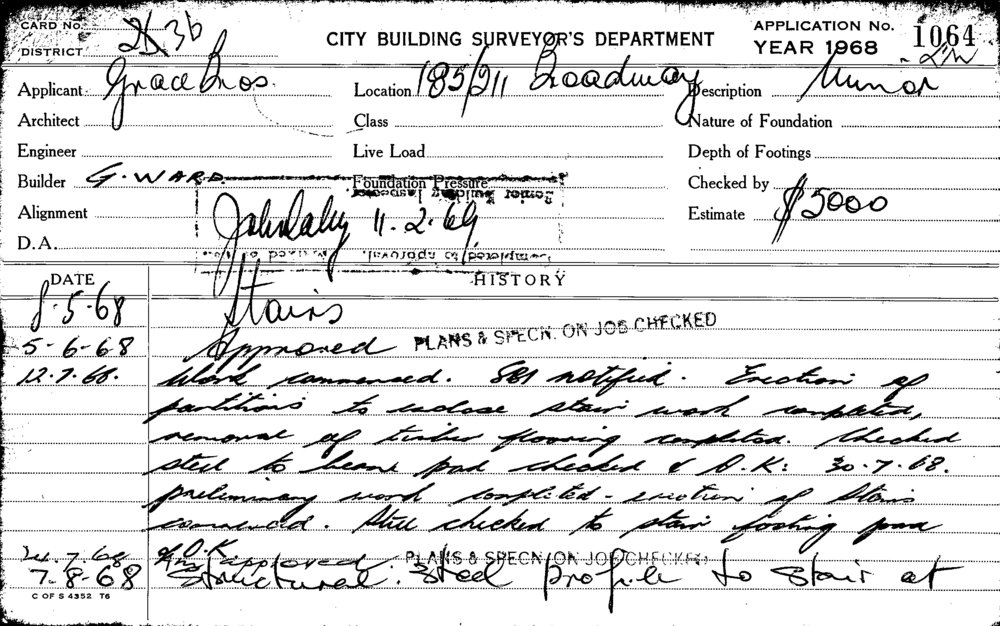 CARD No. 2K 3b
DISTRICT
CITY BUILDING SURVEYOR'S DEPARTMENT
APPLICATION No. 1064
YEAR 1968
Applicant Grace Bros.
Location 185/211 Broadway
Description Minor
Architect
Class
Nature of Foundation
Engineer
Live Load
Depth of Footings
Builder G. WARD.
Foundation Pressure
Checked by
Senior Building Inspector
Alignment
John Daly 11.2.69.
Estimate $5000
D.A.
DATE
HISTORY
8-5-68 Stairs
5-6-68 Approved PLANS & SPECN. ON JOB CHECKED
12.7.68. Work commenced. SBI notified. Erection of
partitions to enclose stair work completed,
removal of timber flooring completed. Checked
steel to beam pad checked & O.K: 30.7.68.
preliminary work completed - erection of Stairs
commenced. Steel checked to stair footing pad
& O.K.
24.7.68 approved. PLANS & SPECN. ON JOB CHECKED
7-8-68 Structural Steel profile to Stair at
C OF S 4352 T6